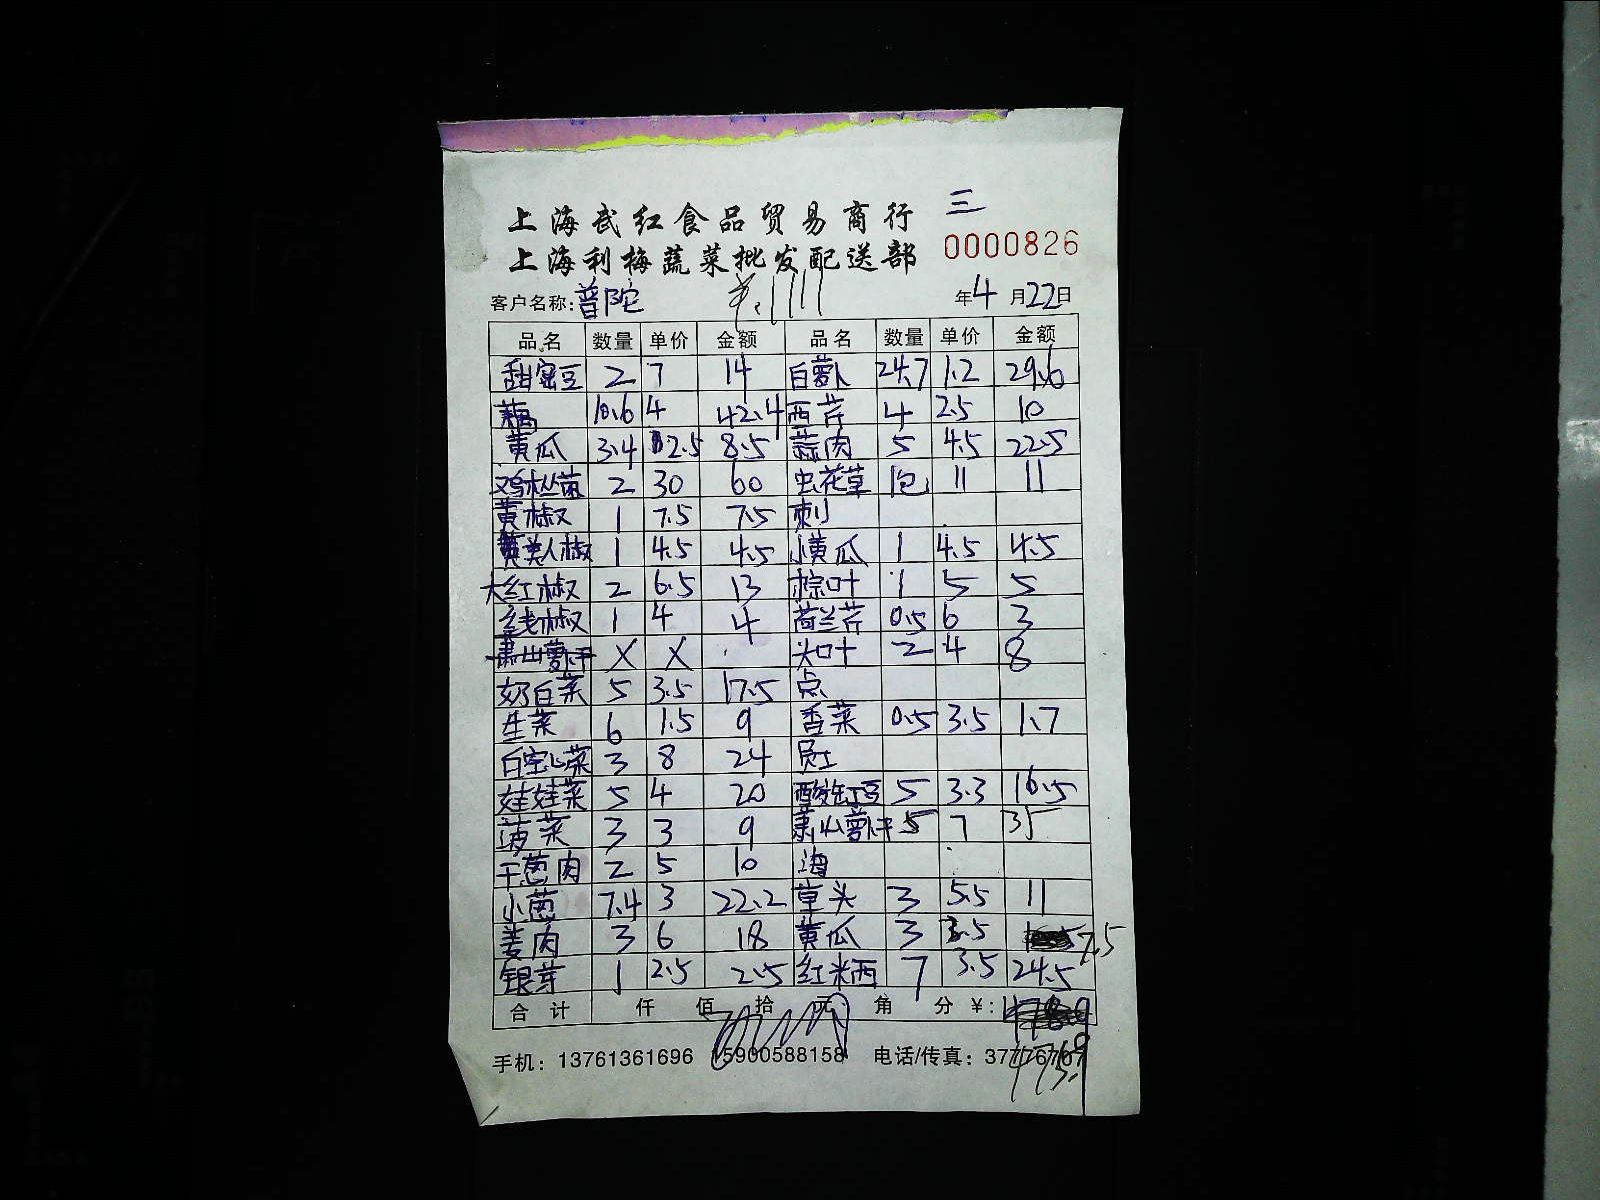 三
上海武红食品贸易商行
上海利梅蔬菜批发配送部 0000826
客户名称:普陀 年4月22日
品名 数量 单价 金额 品名 数量 单价 金额
甜蜜豆 2 7 14 白萝卜 24.7 1.2 29.6
藕 10.6 4 42.4 西芹 4 2.5 10
黄瓜 3.4 2.5 8.5 蒜肉 5 4.5 22.5
鸡枞菌 2 30 60 虫花草 1包 11 11
黄椒 1 7.5 7.5 刺
黄美人椒 1 4.5 4.5 小黄瓜 1 4.5 4.5
大红椒 2 6.5 13 棕叶 1 5 5
线椒 1 4 4 荷兰芹 0.5 6 3
萧山萝卜干 X X 尖叶 2 4 8
奶白菜 5 3.5 17.5 点
生菜 6 1.5 9 香菜 0.5 3.5 1.7
白空心菜 3 8 24 员工
娃娃菜 5 4 20 酸缸豆 5 3.3 16.5
菠菜 3 3 9 萧山萝卜干 5 7 35
干葱肉 2 5 10 海
小葱 7.4 3 22.2 草头 3 5.5 11
姜肉 3 6 18 黄瓜 3 3.5 7.5
银芽 1 2.5 2.5 红米西 7 3.5 24.5
合计 仟 佰 拾 元 角 分 ¥:
手机：13761361696 15900588158 电话/传真：37776769